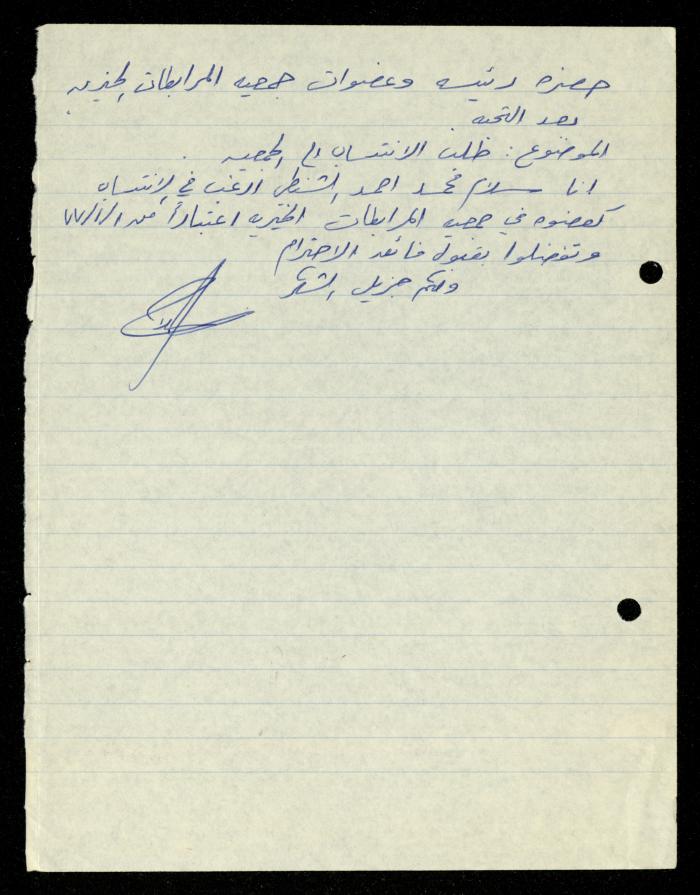 حضرة رئيسة وعضوات جمعيه المرابطات الخيريه
بعد التحيه
الموضوع: طلب الانتساب الى الجمعيه
انا سلام محمد احمد الشنطي ارغب في الانتساب
كعضوه في جمعيه المرابطات الخيريه اعتباراً من ٧٧/١/١
وتفضلوا بقبول فائق الاحترام
ولكم جزيل الشكر